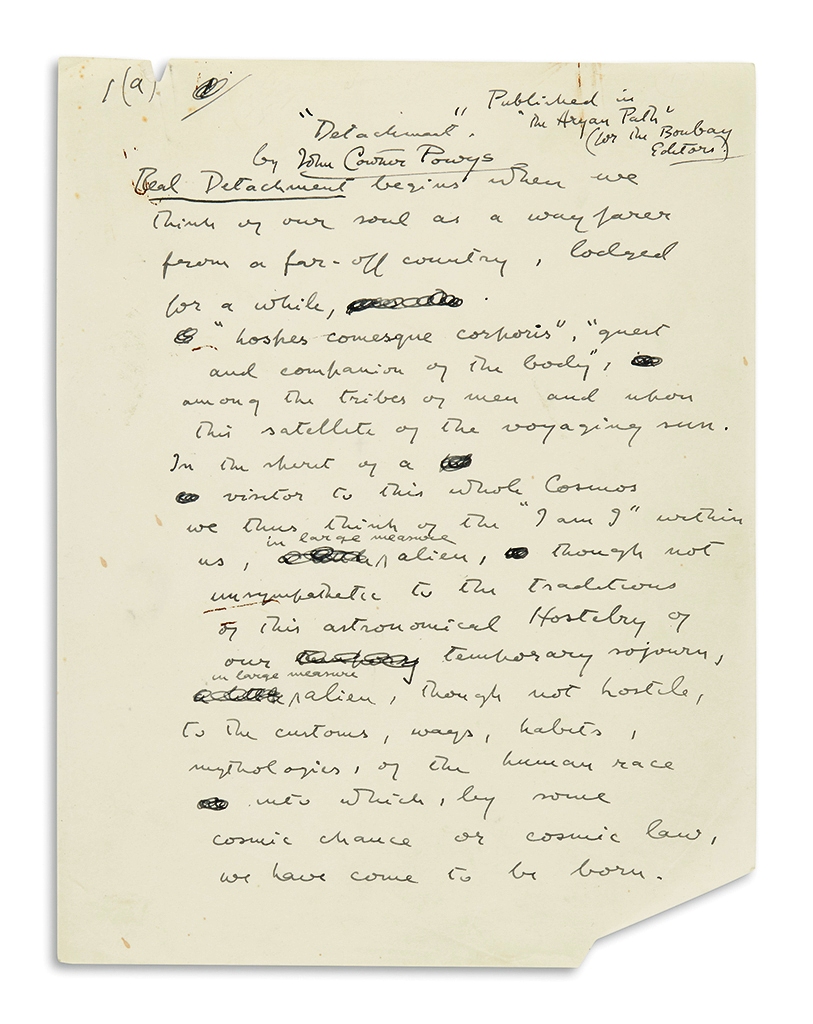 1(a)
Published in
"Detachment". "The Aryan Path"
(for the Bombay
by John Cowper Powys Editors)
Real Detachment begins when we
think of our soul as a wayfarer
from a far-off country, lodged
for a while,
"hospes comesque corporis", "guest
and companion of the body",
among the tribes of men and upon
this satellite of the voyaging sun.
In the spirit of a
visitor to this whole Cosmos
we thus think of the "I am I" within
in large measure
us, alien, though not
unsympathetic to the traditions
of this astronomical Hostelry of
our temporary sojourn,
in large measure
alien, though not hostile,
to the customs, ways, habits,
mythologies, of the human race
into which, by some
cosmic chance or cosmic law,
we have come to be born.